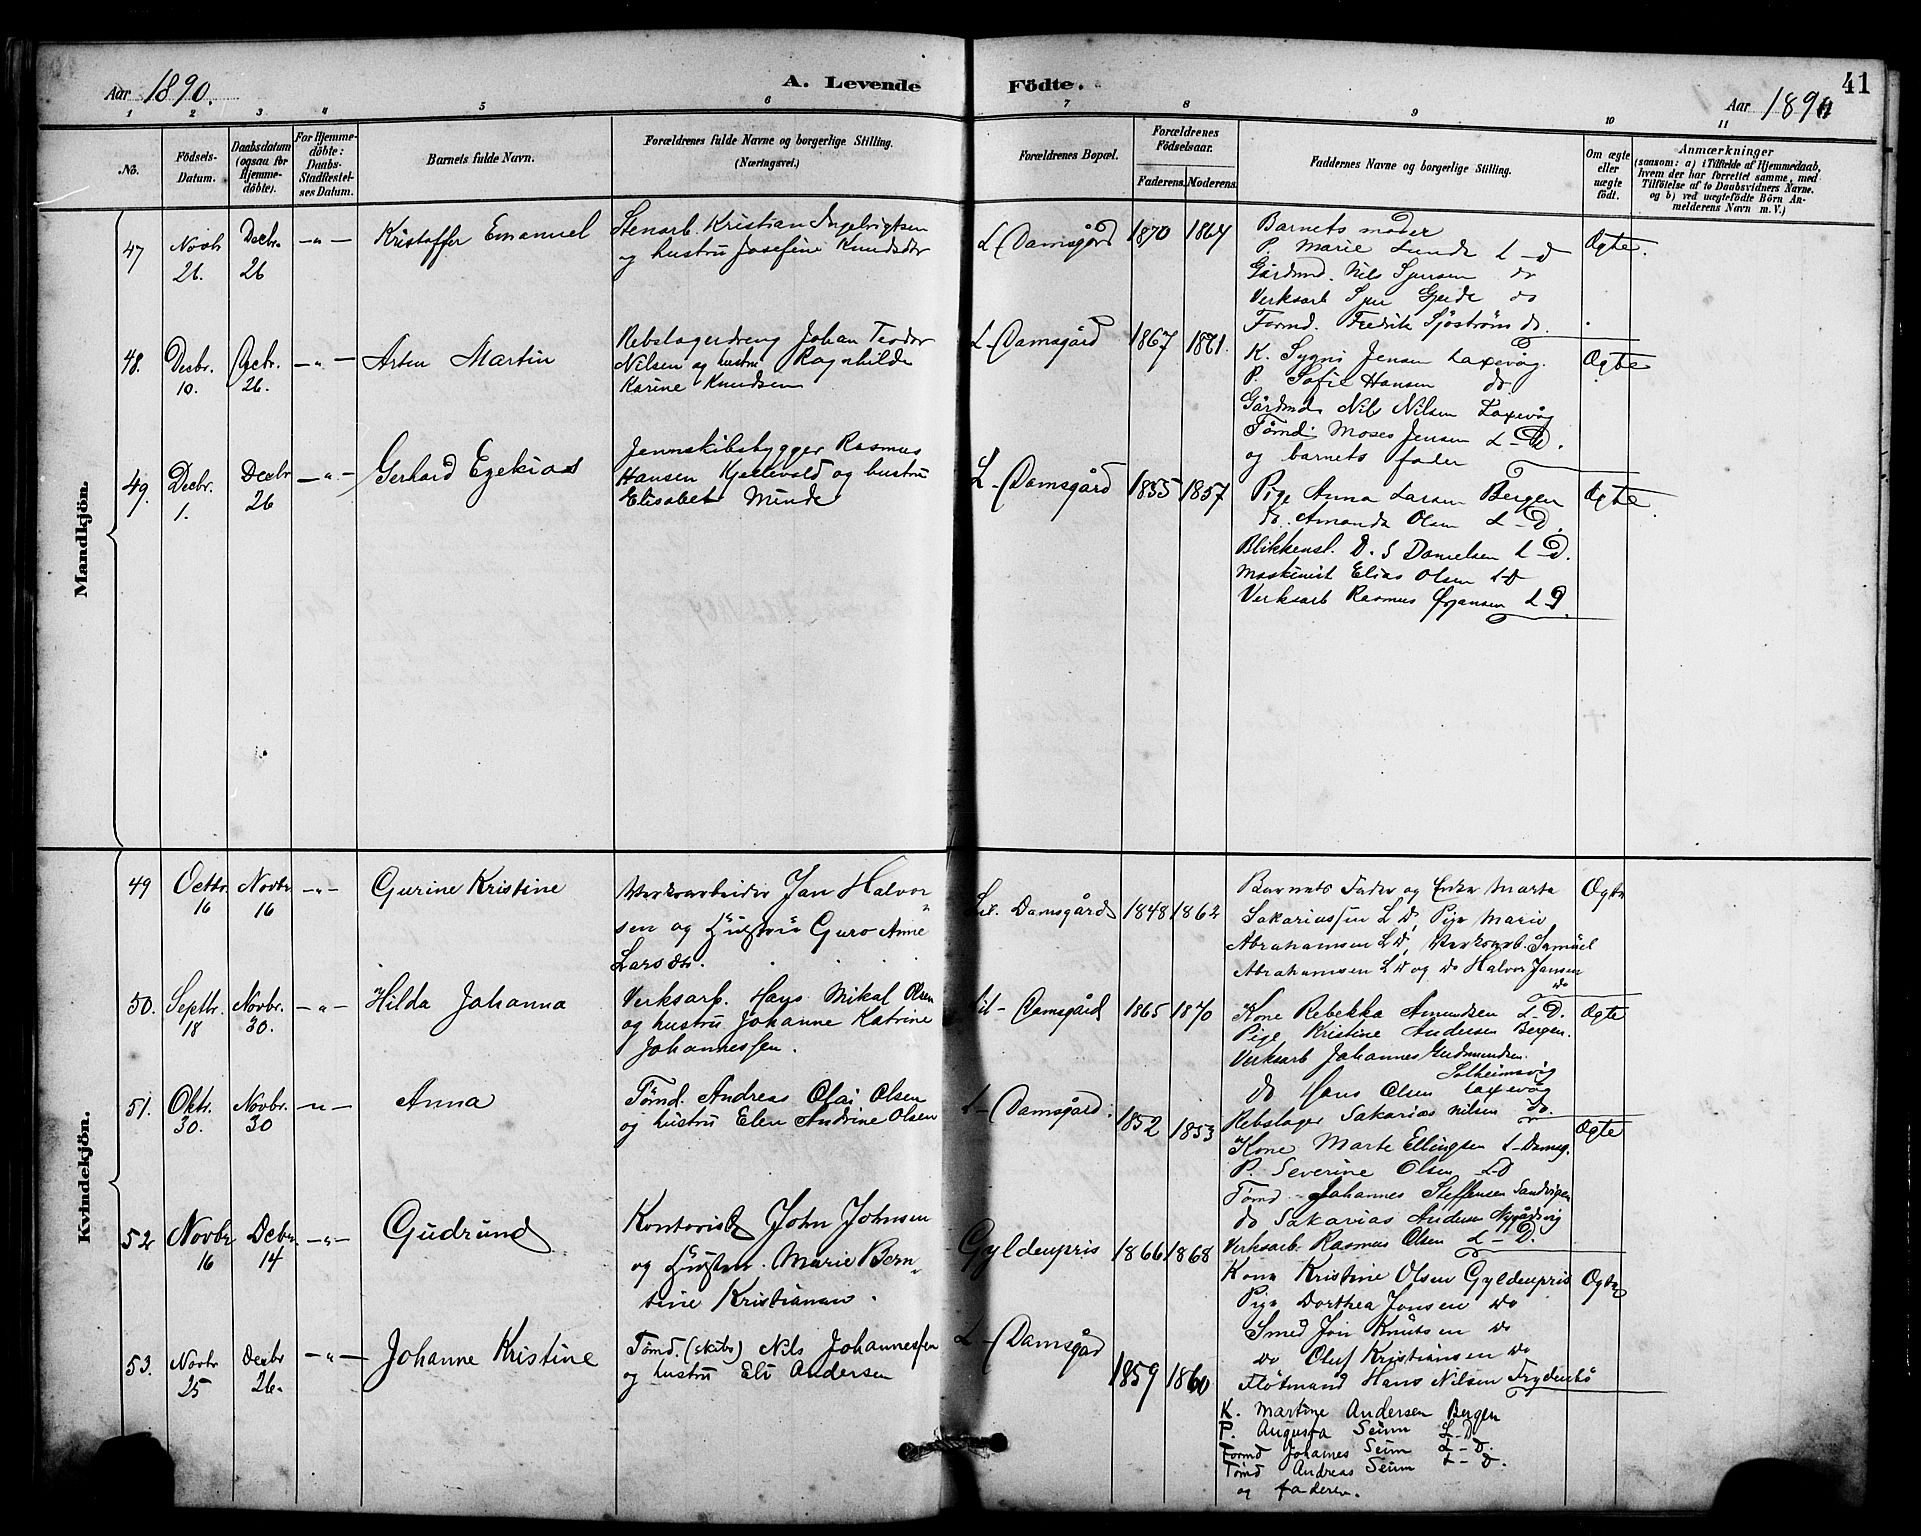 Aar 1890.
A. Levende Födte.
Aar 1890
41
1 2 3 4 5 6 7 8 9 10 11
No.
Födsels-Datum.
Daabsdatum (ogsaa for Hjemmedöbte).
For Hjemmedöbte: Daabs-Stadfæstelses Datum.
Barnets fulde Navn.
Forældrenes fulde Navne og borgerlige Stilling.
(Næringsvei.)
Forældrenes Bopæl.
Forældrenes Födselsaar.
Faderens. Moderens.
Faddernes Navne og borgerlige Stilling.
Om ægte eller uægte födt.
Anmærkninger
(saasom: a) i Tilfælde af Hjemmedaab, hvem der har forrettet samme, med Tilföielse af to Daabsvidners Navne. og b) ved uægtefödte Börn Anmelderens Navn m. V.)
Mandkjön.
47 Novbr. 26. Decbr. 26 — " — Kristoffer Emanuel
Stenarb. Kristian Ingebrigtsen
og hustru Josefine Knudsdtr
L-Damsgård 1870 1864
Barnets moder
P. Marie Lunde L-D
Gårdmd. Nils Sjursen do
Verksarb Sjur Gjerde do
Formd. Fredrik Sjöström do.
Ægte.
48. Decbr. 10. Decbr. 26. — " — Martin
Rebslagerdreng Johan Teodor
Nilsen og hustru Ragnhilde
Karine Knudsen
L-Damsgård 1867 1861.
K. Jensen Laxevåg.
P. Sofie Hansen do
Gårdmd Nils Nilsen Laxevåg
Tømd. Moses Jensen L-D.
og barnets fader
Ægte
49. Decbr. 1. Decbr 26 — " — Gerhard Ezekias
Jernskibsbygger Rasmus
Hansen Kjellevold og hustru
Elisabet Minde
L-Damsgård 1855 1857
Pige Anna Larsen Bergen
K. Amanda Olsen L-D.
Blikkensl. D. S Danielsen L-D.
Maskinist Elias Olsen L-D
Verksarb Rasmus Ørjansen L D.
Ægte
Kvindekjön.
49 Octbr. 16 Novbr. 16 — " — Gurine Kristine
Verksarbeider Jan Halvor-
sen og Hustru Guro Anne
Larsdtr.
Lil. Damsgård 1848 1862
Barnets Fader og Enke Marta
Sakariassen L D, Pige Marie
Abrahamsen L D, Verksarb. Samuel
Abrahamsen L D og do Halvor Jansen
do
Ægte
50. Septbr. 18 Novbr. 30. — " — Hilda Johanna
Verksarb. Hans Mikal Olsen
og hustru Johanne Katrine
Johannessen.
Lil-Damsgård 1865 1870
Kone Rebekka Amundsen L-D.
Pige Kristine Andersen Bergen.
Verksarb Johannes Gudmundsen.
Solheimsvig
do Hans Olsen Laxevåg
Rebslager Sakarias Nilsen do.
Ægte
51. Oktbr. 30. Novbr. 30 — " — Anna
Tømd. Andreas Olai Olsen
og hustru Elen Andrine Olsen
L-Damsgård. 1852 1853
Kone Marte Ellingsen L-Damsg.
P. Severine Olsen L-D
Tømd Johannes Steffensen Sandvigen
do Sakarias Andersen Nygårdsvig
Verksarb. Rasmus Olsen L-D.
Ægte
52 Novbr 16 Debr 14 — " — Gudrund
Kontorist John Johnsen
og Hustru Marie Bern-
tine Kristiansen.
Gyldenpris 1866 1868
Kone Kristine Olsen Gyldenpris
Pige Dorthea Jonsen do
Smed Jon Knutsen do
do Oluf Kristiansen do
Flötmand Hans Nilsen Frydenbö
Ægte
53. Novbr 25 Decbr 26. — " — Johanne Kristine
Tømd. (skibs) Nils Johannessen
og hustru Eli Andersen
L-Damsgård 1859 1860
K. Martine Andersen Bergen
P. Augusta Seim L-D
Formd Johannes Seim L-D.
Tømd Andreas Seim L-D.
og faderen.